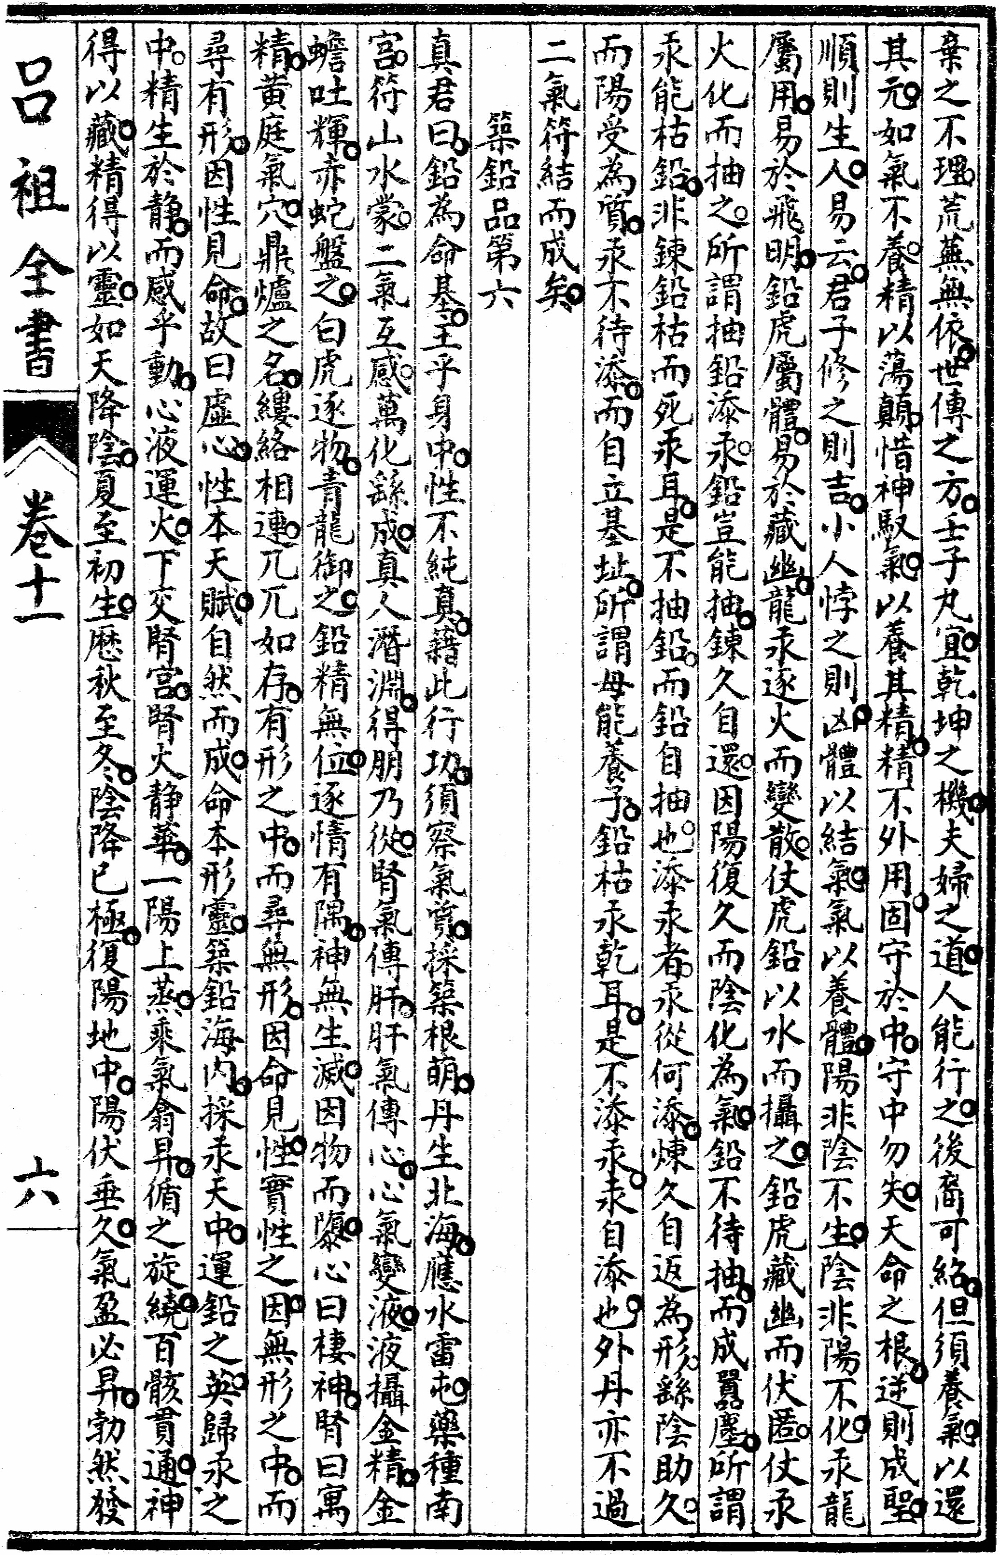 棄之不理荒蕪無依世傳之方士子丸宜乾坤之機夫婦之道人能行之後裔可紹但須養氣以還
其元如氣不養精以蕩顛惜神馭氣以養其精精不外用固守於中守中勿失天命之根逆則成聖
順則生人易云君子修之則吉小人悖之則凶體以結氣氣以養體陽非陰不生陰非陽不化汞龍
屬用易於飛明鉛虎屬體易於藏幽龍汞逐火而變散仗虎鉛以水而攝之鉛虎藏幽而伏匿仗汞
火化而抽之所謂抽鉛添汞鉛豈能抽鍊久自還因陽復久而陰化為氣鉛不待抽而成囂塵所謂
汞能枯鉛非鍊鉛枯而死汞耳是不抽鉛而鉛自抽也添汞者汞從何添煉久自返為形繇陰助久
而陽受為質汞不待添而自立基址所謂母能養子鉛枯汞乾耳是不添汞汞自添也外丹亦不過
二氣符結而成矣
築鉛品第六
真君曰鉛為命基主乎身中性不純真藉此行功須察氣質採築根萌丹生北海應水雷屯藥種南
宮符山水蒙二氣互感萬化繇成真人潛淵得朋乃從腎氣傳肝肝氣傳心心氣變液液攝金精金
蟾吐輝赤蛇盤之白虎逐物青龍御之鉛精無位逐情有隅神無生滅因物而隳心曰棲神腎曰寓
精黃庭氣穴鼎爐之名縷絡相連兀兀如存有形之中而尋無形因命見性實性之因無形之中而
尋有形因性見命故曰虛心性本天賦自然而成命本形靈築鉛海內採汞天中運鉛之英歸汞之
中精生於靜而感乎動心液運火下交腎宮腎火靜華一陽上蒸乘氣翕昇循之旋繞百骸貫通神
得以藏精得以靈如天降陰夏至初生歷秋至冬陰降已極復陽地中陽伏垂久氣盈必昇勃然發
呂祖全書
卷十一
六